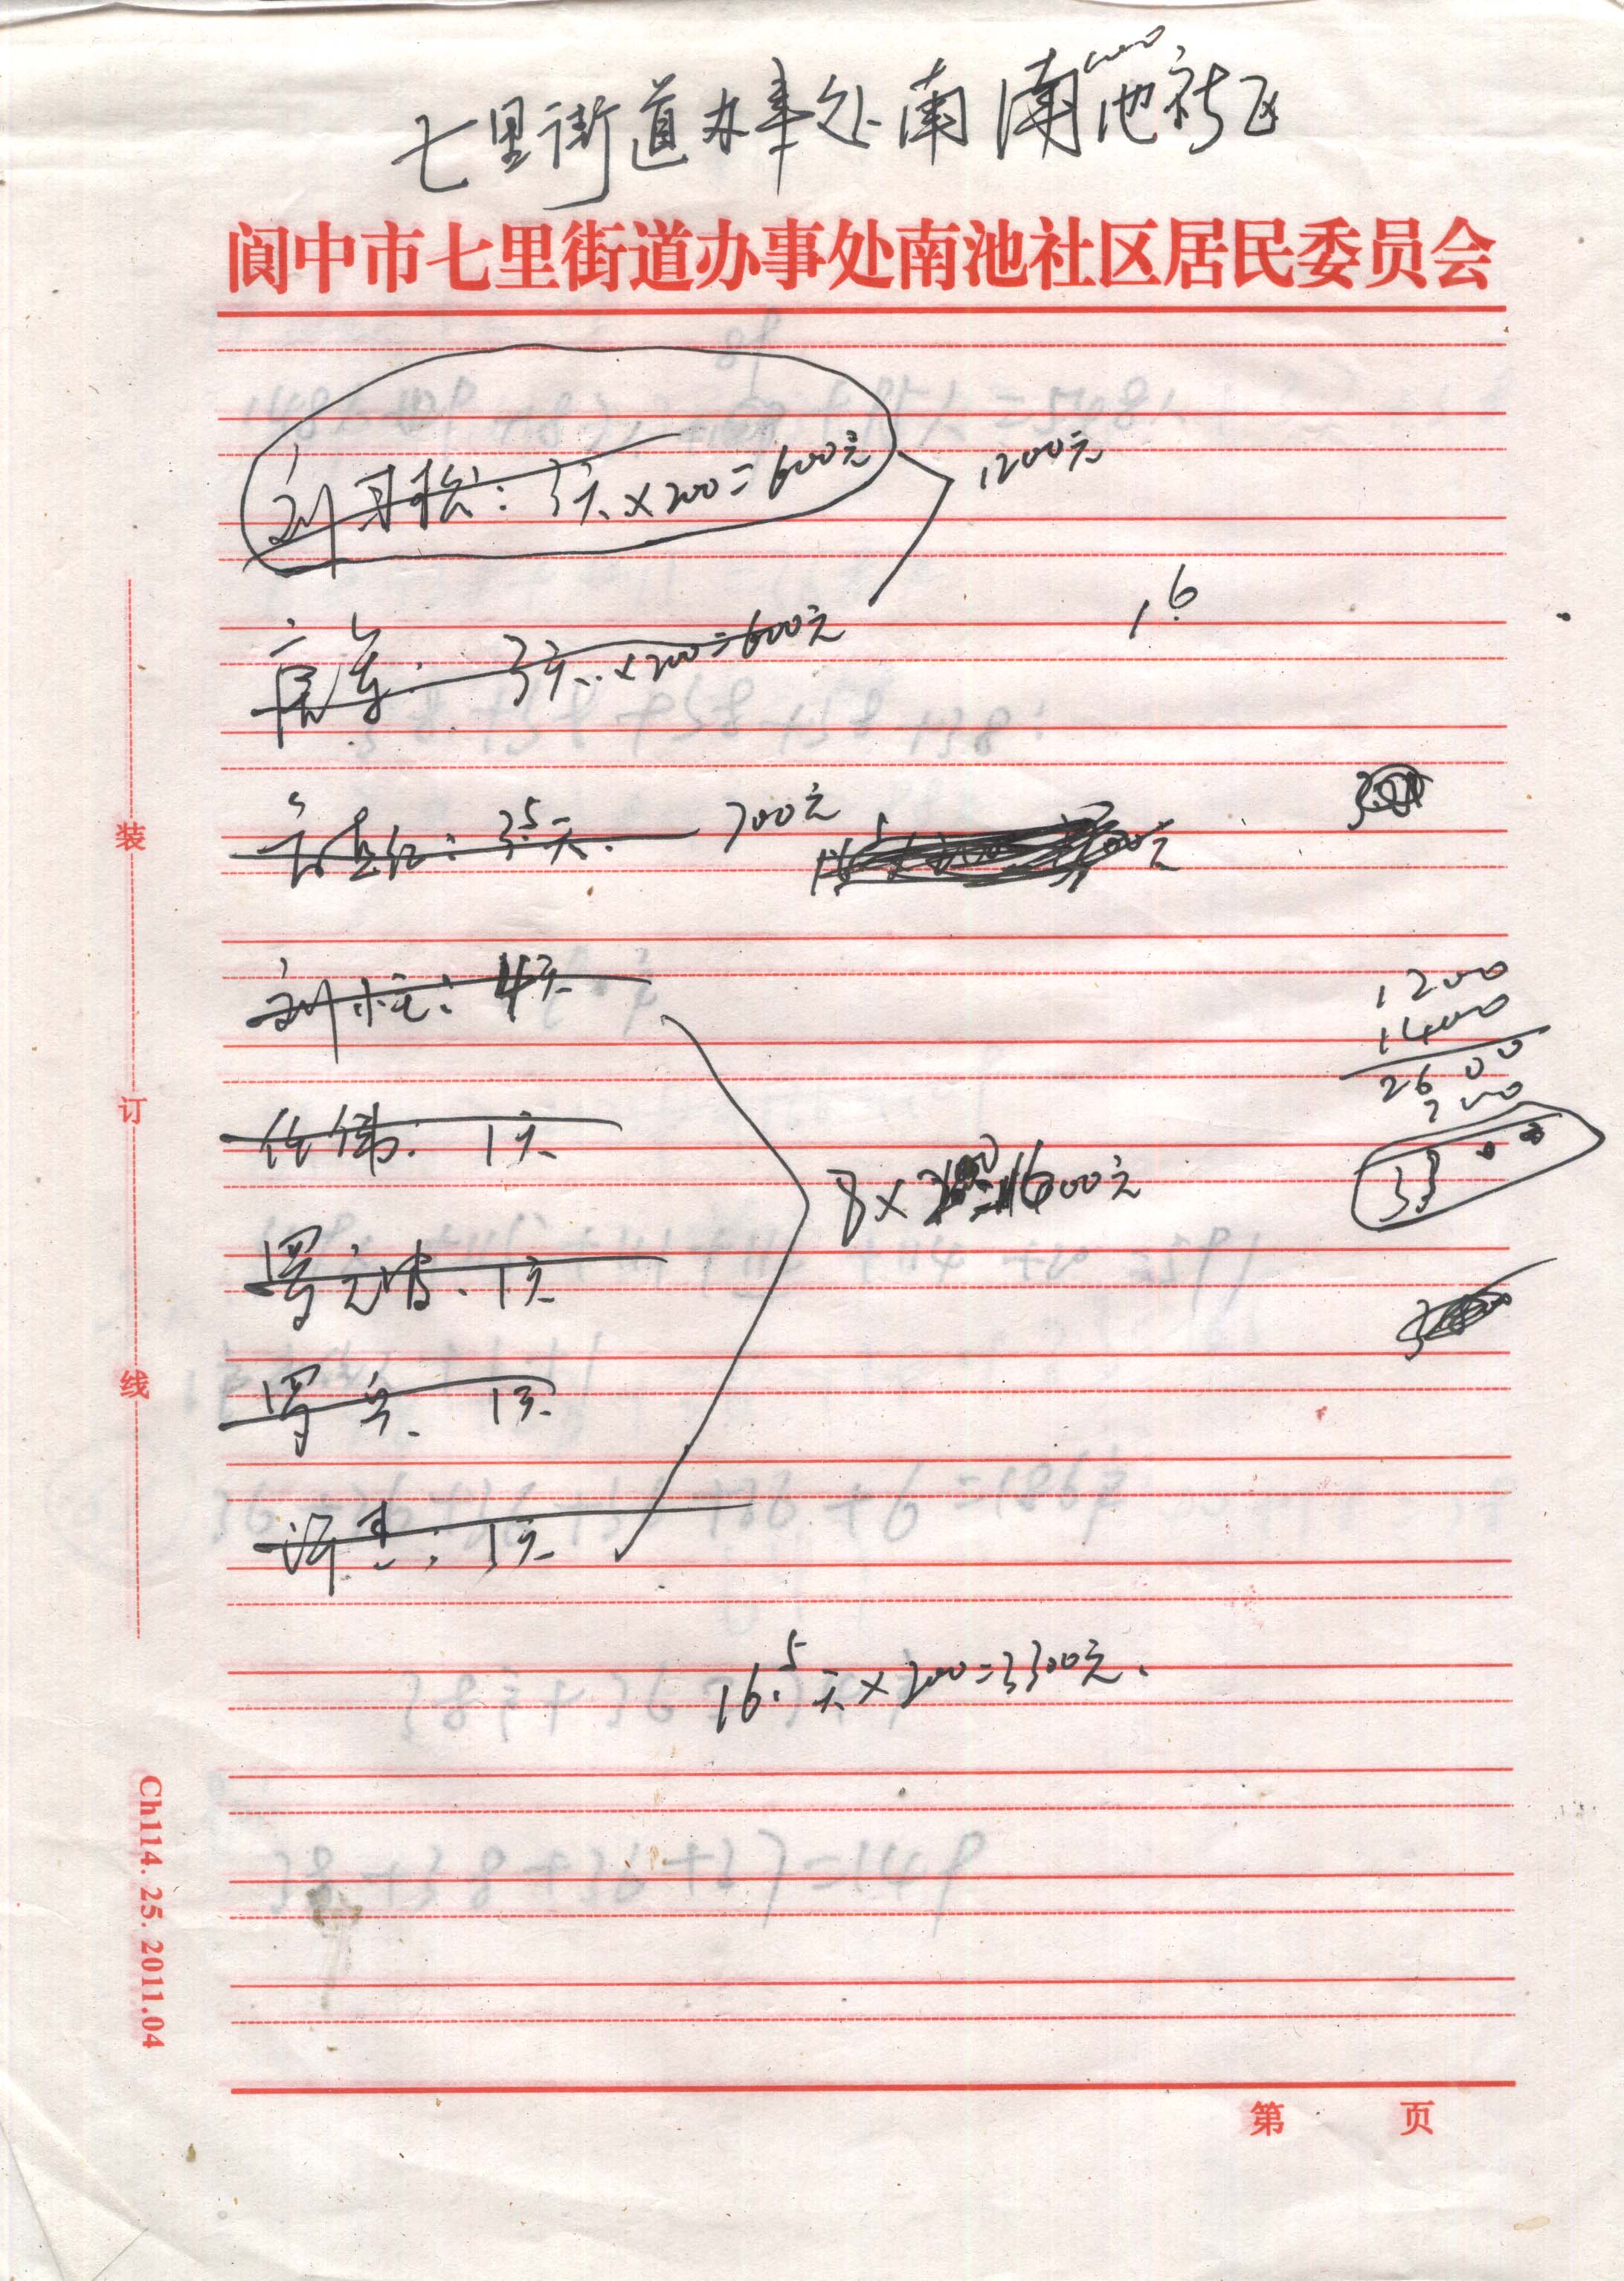 七里街道办事处南南池社区
阆中市七里街道办事处南池社区居民委员会
3天×200=600元
1200元
3天×200=600元
1.6
3.5天. 700元
刘 4天
1200
1400
2600
700
3300
任伟. 1天
8×200=1600元
罗元 1天
罗兵. 1天
1天
16.5天×200=3300元.
装
订
线
Ch114. 25. 2011.04
第 页